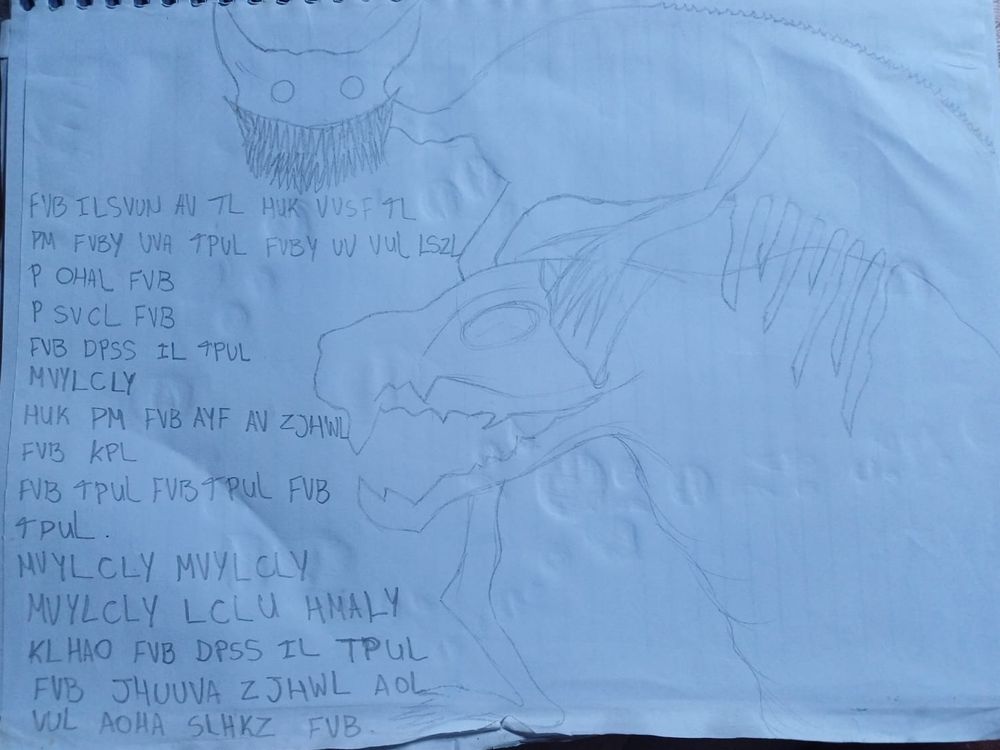 FVB ILSVUN AV TL HUK VVSF TL
PM FVBY UVA TPUL FVBY UV VUL LSZL
P OHAL FVB
P SVCL FVB
FVB DPSS IL TPUL
MVYLCLY
HUK PM FVB AYF AV ZJHWL
FVB KPL
FVB TPUL FVB TPUL FVB
TPUL.
MVYLCLY MVYLCLY
MVYLCLY LCLU HMALY
KLHAO FVB DPSS IL TPUL
FVB JHUUVA ZJHWL AOL
VUL AOHA SLHKZ FVB.